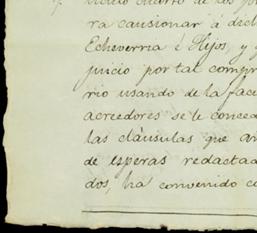 ra causionar á dicl
Echeverria é Hijos, y y
juicio por tal compr
rio usando de la face
acreedores se le conced
las cláusulas que an
de esperas redactad
dos, ha convenido co